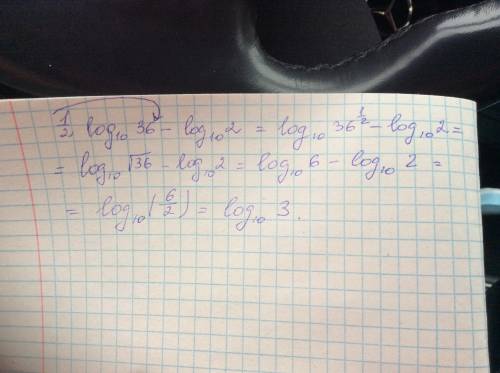 ½ log₁₀ 36 - log₁₀ 2 = log₁₀ 36^½ - log₁₀ 2 =
= log₁₀ √36 - log₁₀ 2 = log₁₀ 6 - log₁₀ 2 =
= log₁₀ (6/2) = log₁₀ 3.